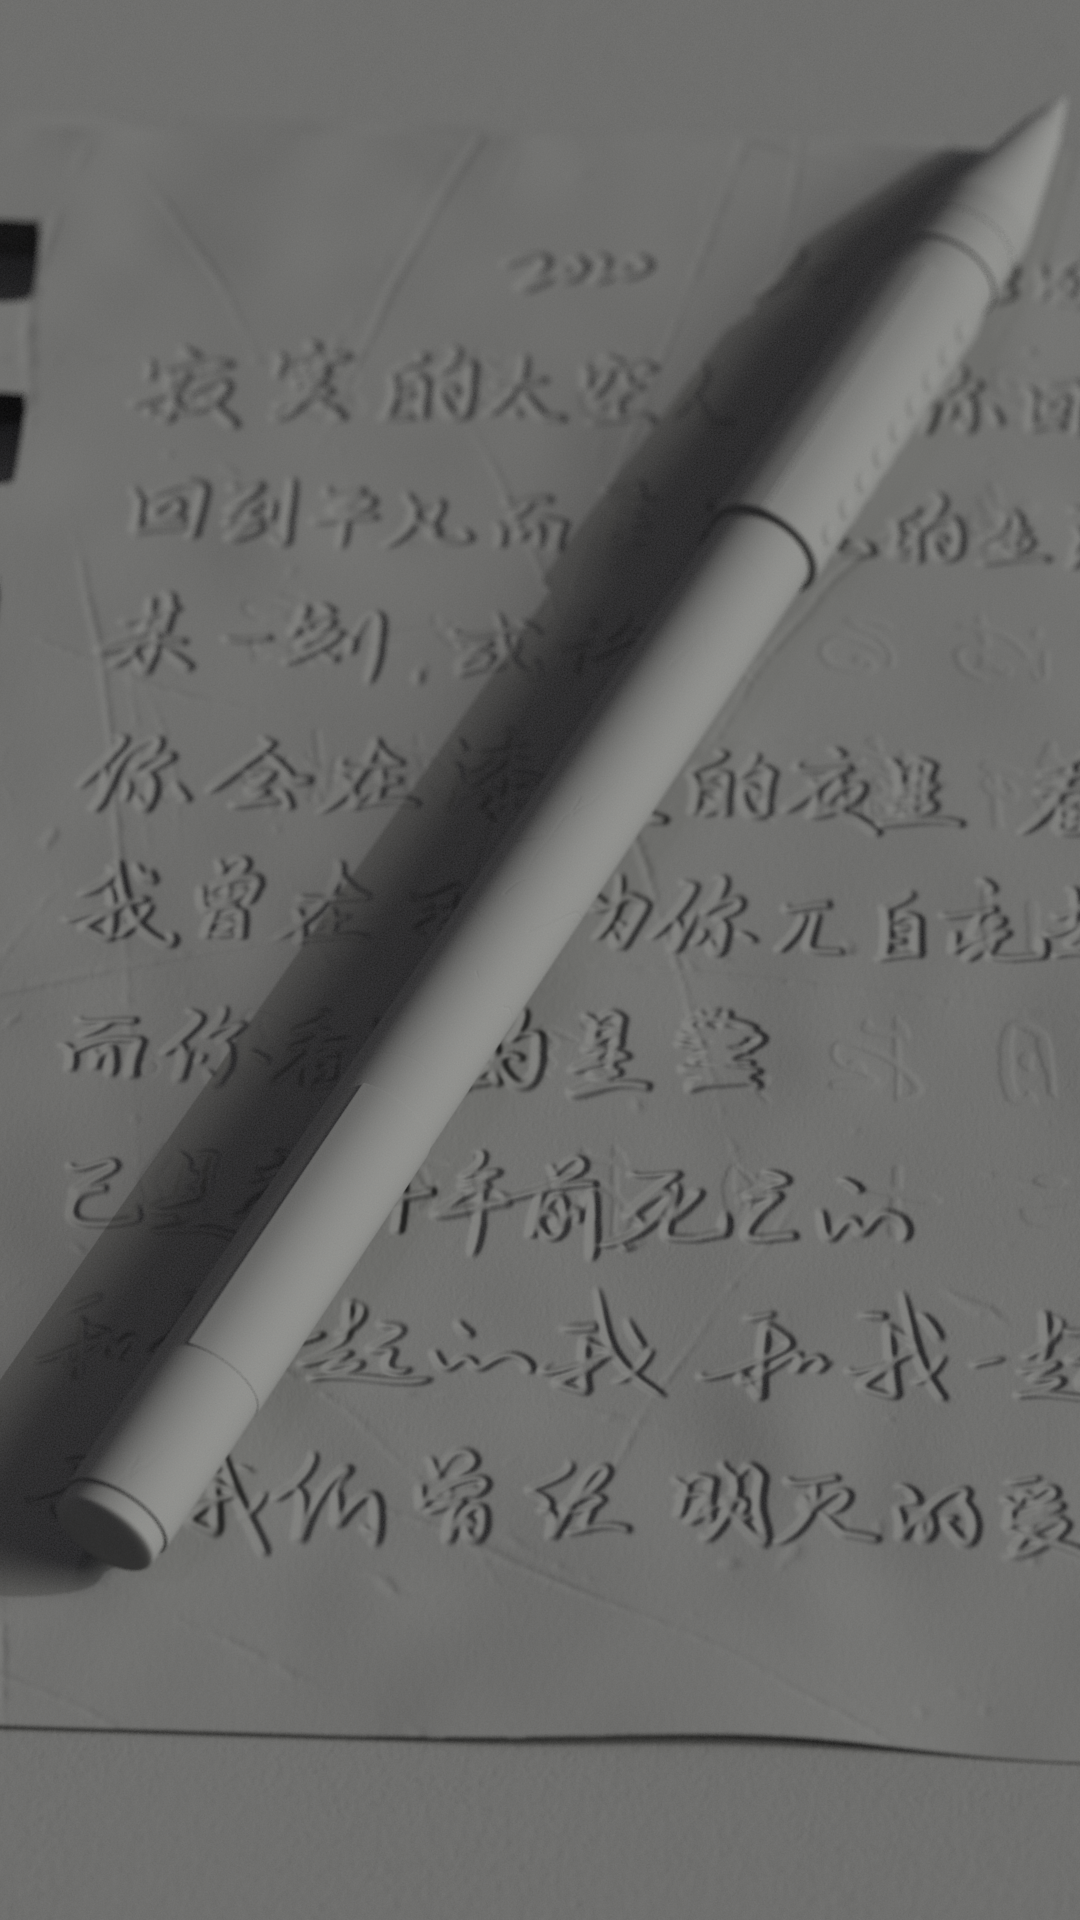 2020
寂寞的太空人 你回
回到平凡而 的生
某一刻，或许
你会在 的夜里 看
我曾在 为你兀自
而你看 的星星
已是 千年前死亡的
和 起的我 和我一起
我们曾经 明灭的爱